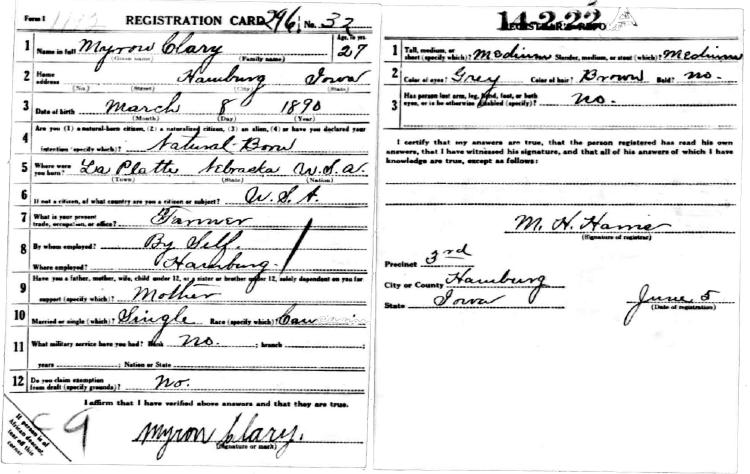 Form 1
REGISTRATION CARD 296 No. 32
1 Name in full Myron Clary Age, in yrs 27
(Given name) (Family name)
2 Home address Hamburg Iowa
(No.) (Street) (City) (State)
3 Date of birth March 8 1890
(Month) (Day) (Year)
4 Are you (1) a natural-born citizen, (2) a naturalized citizen, (3) an alien, (4) or have you declared your
intention (specify which)? Natural Born
5 Where were you born? La Platte Nebraska U.S.A.
(Town) (State) (Nation)
6 If not a citizen, of what country are you a citizen or subject? U.S.A.
7 What is your present trade, occupation, or office? Farmer
8 By whom employed? By Self.
Where employed? Hamburg.
9 Have you a father, mother, wife, child under 12, or a sister or brother under 12, solely dependent on you for
support (specify which)? Mother
10 Married or single (which)? Single Race (specify which)? Cau
11 What military service have you had? Rank no. ; branch
years ; Nation or State
12 Do you claim exemption from draft (specify grounds)? No.
I affirm that I have verified above answers and that they are true.
Myron Clary.
(Signature or mark)
If person is of
African descent,
tear off this
corner
14-2-22
1 Tall, medium, or short (specify which)? Medium Slender, medium, or stout (which)? Medium
2 Color of eyes? Grey Color of hair? Brown Bald? No.
3 Has person lost arm, leg, hand, foot, or both
eyes, or is he otherwise disabled (specify)? No.
I certify that my answers are true, that the person registered has read his own
answers, that I have witnessed his signature, and that all of his answers of which I have
knowledge are true, except as follows:
M. H.
(Signature of registrar)
Precinct 3rd
City or County Hamburg
State Iowa
June 5
(Date of registration)